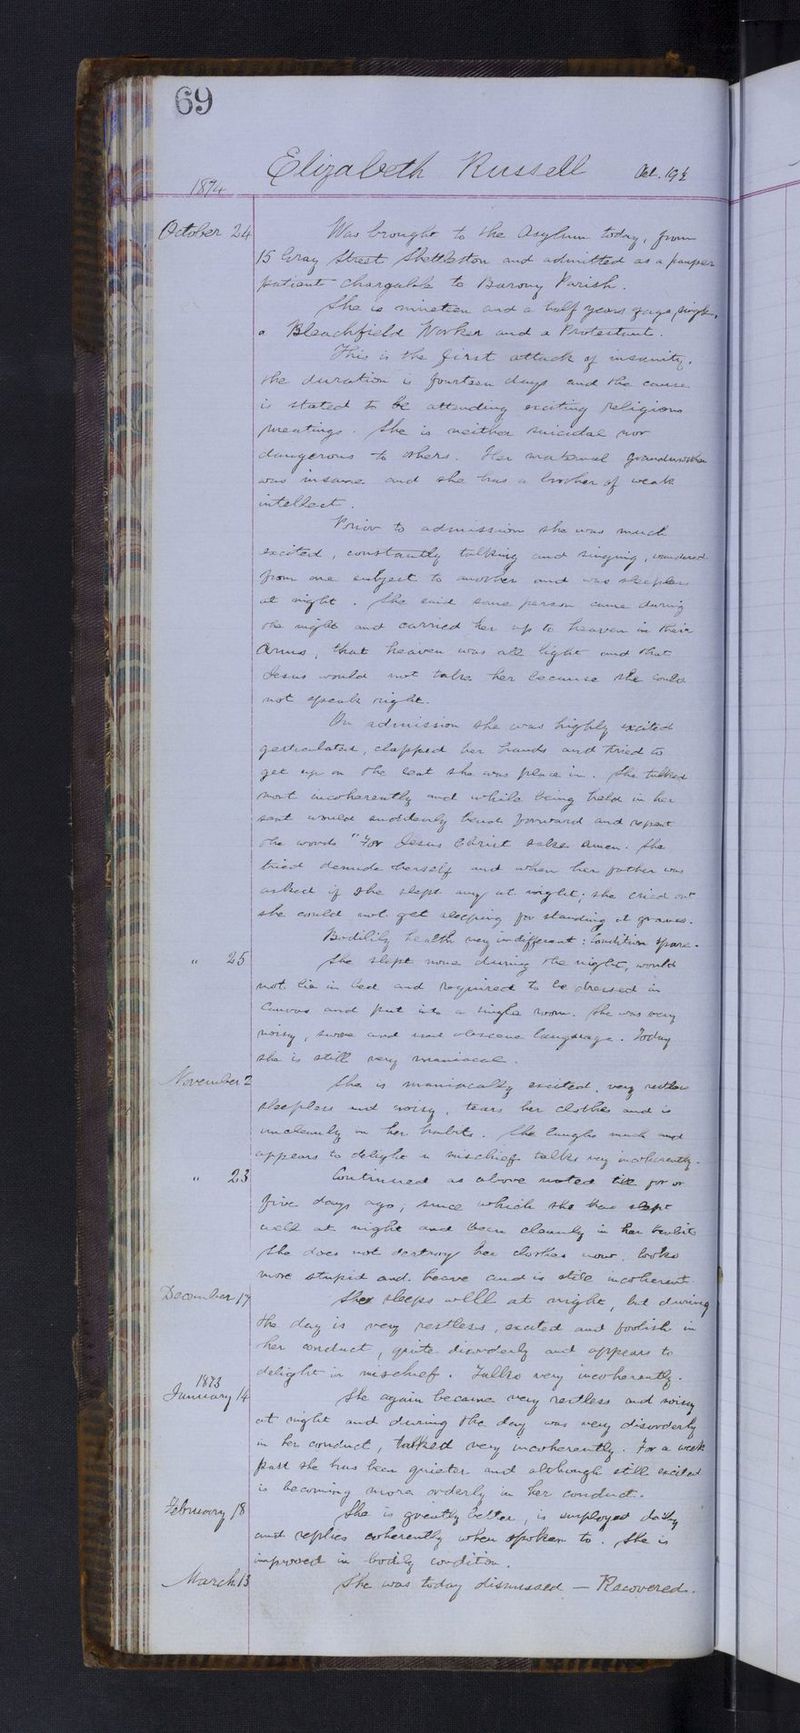 69
Elizabeth Russell Aet. 19½
1874
October 24 Was brought to the Asylum today, from
15 Gray Street Shettleston and admitted as a pauper
patient chargable to Barony Parish.
She is nineteen and a half years of age, single,
a Bleachfield Worker and a Protestant.
This is the first attack of insanity.
the duration is fourteen days and the cause
is stated to be attending exciting religious
meetings. She is neither suicidal nor
dangerous to others. Her maternal grandmother
was insane and she has a brother of weak
intellect.
Prior to admission she was much
excited, constantly talking and singing, wandered
from one subject to another and was sleepless
at night. She said some person came during
the night and carried her up to heaven in their
arms, that heaven was all light and that
Jesus would not take her because she could
not speak right.
On admission she was highly excited
gesticulated, clapped her hands and tried to
get up on the seat she was place in. She talked
most incoherently and while being held in her
seat would suddenly bend forward and repeat
the words "For Jesus Christ sake Amen. She
tried denude herself and when her father was
asked if she slept any at night; she cried out
she could not get sleeping for standing at graves.
Bodilily health very indifferent: Condition spare.
" 25 She slept none during the night, would
not lie in bed and required to be dressed in
Canvas and put into a single room. She was very
noisy, swore and used obscene language. Today
she is still very maniacal.
November 2 She is maniacally excited, very restless
sleepless and noisy, tears her clothes and is
uncleanly in her habits. She laughs much and
appears to delight in mischief. talks very incoherently.
" 23 Continued as above noted till for or
five days ago, since which she has slept
well at night and been cleanly in her habits
She does not destroy her clothes now. looks
more stupid and and is still incoherent
December 17 She sleeps well at night, but during
the day is very restless, excited and foolish in
her conduct, quite disorderly and appears to
delight in mischief. Talks very incoherently.
1873
January 14 She again became very restless and noisy
at night and during the day was very disorderly
in her conduct, talked very incoherently. For a week
past she has been quieter and although still excited
is becoming more orderly in her conduct.
February 18 She is greatly better, is employed daily
and replies coherently when spoken to. She is
improved in bodily condition.
March 13 She was today dismissed — Recovered.